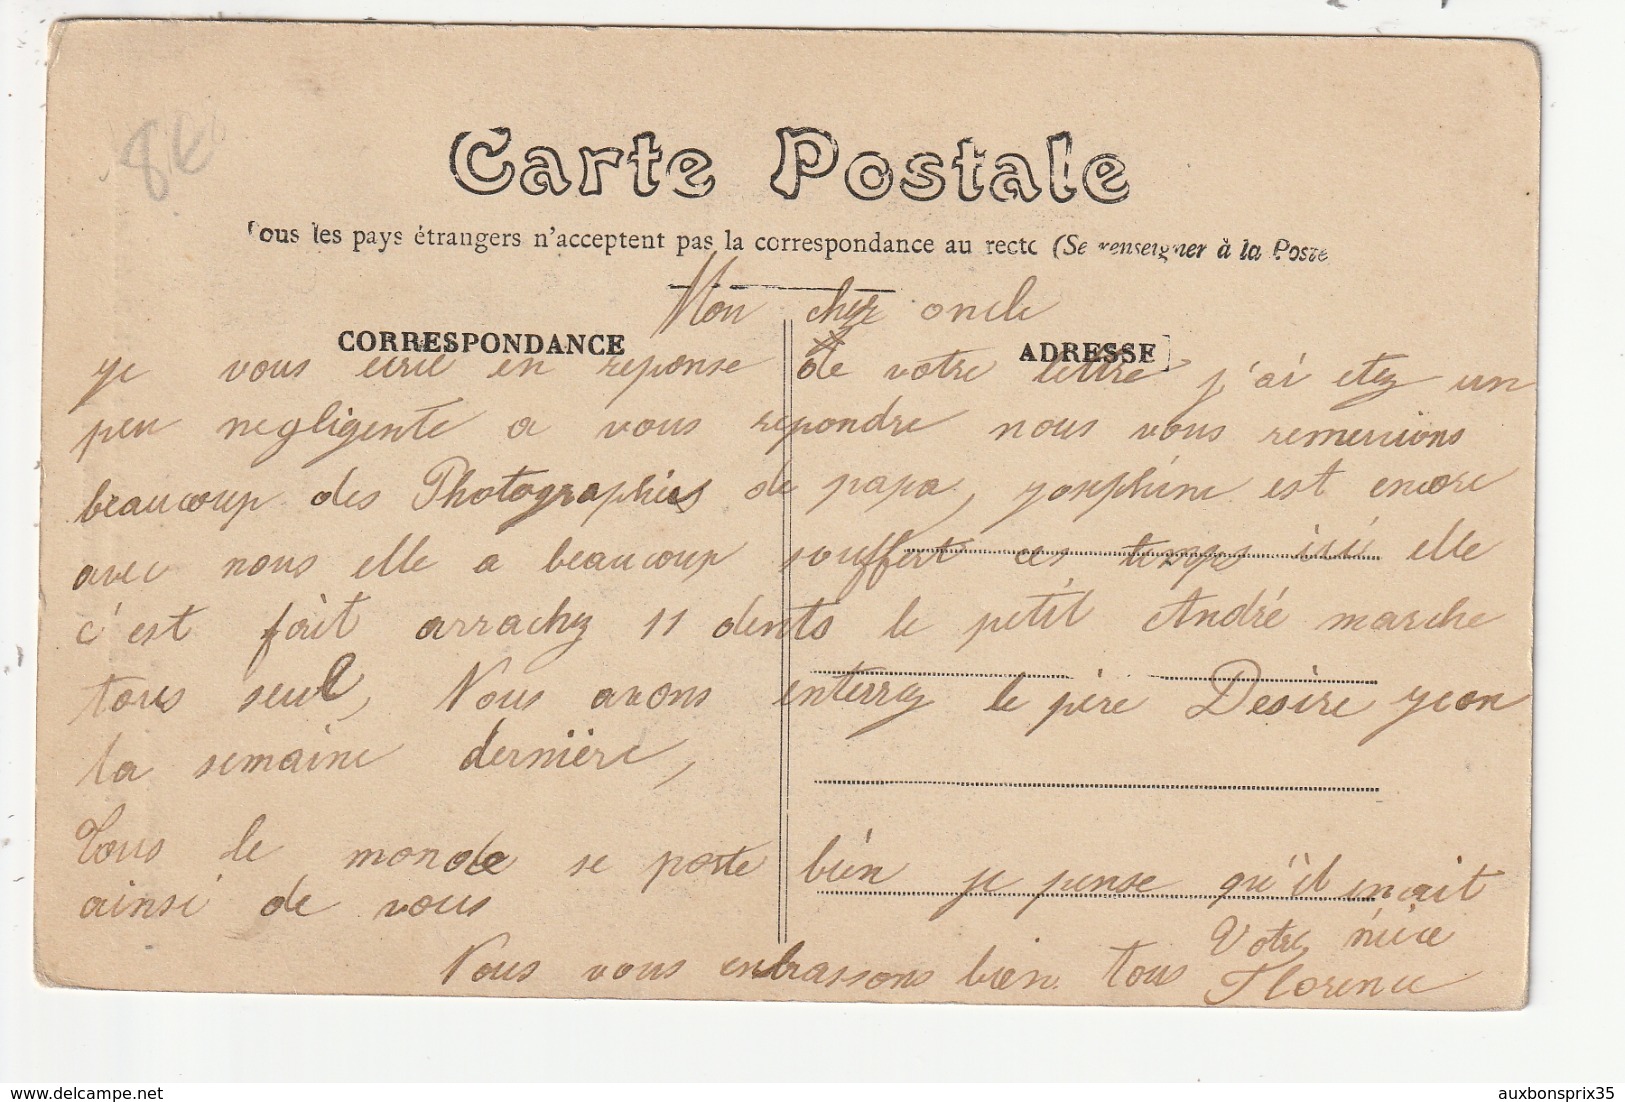 8€
Carte Postale
Tous les pays étrangers n'acceptent pas la correspondance au recto (Se renseigner à la Poste
Mon cher oncle
CORRESPONDANCE
ADRESSE
je vous ecrie en reponse de votre lettre j'ai etez un
peu negligente a vous repondre nous vous remercions
beaucoup des Photographies de papa, Josephine est encore
avec nous elle a beaucoup souffert ces temps ici elle
c'est fait arrachez 11 dents le petit André marche
tous seul, Nous avons enterrez le père Desire
la semaine dernière,
Tous le monde se porte bien je pense qu'il en ait
ainsi de vous
Votre niece
Nous vous enbrassons bien tous Florence
www.delcampe.net
auxbonsprix35